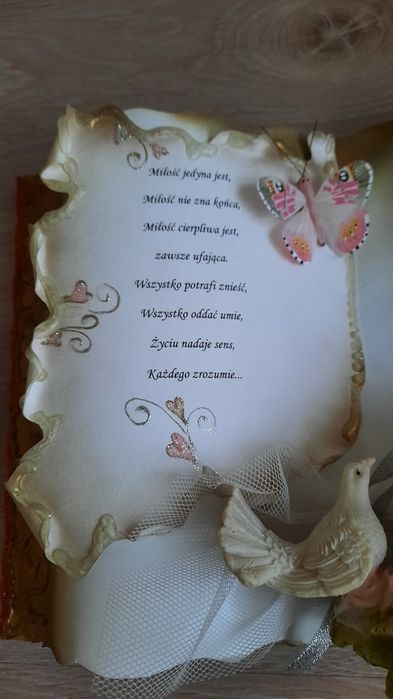 Miłość jedyna jest,
Miłość nie zna końca,
Miłość cierpliwa jest,
zawsze ufająca.
Wszystko potrafi znieść,
Wszystko oddać umie,
Życiu nadaje sens,
Każdego zrozumie...